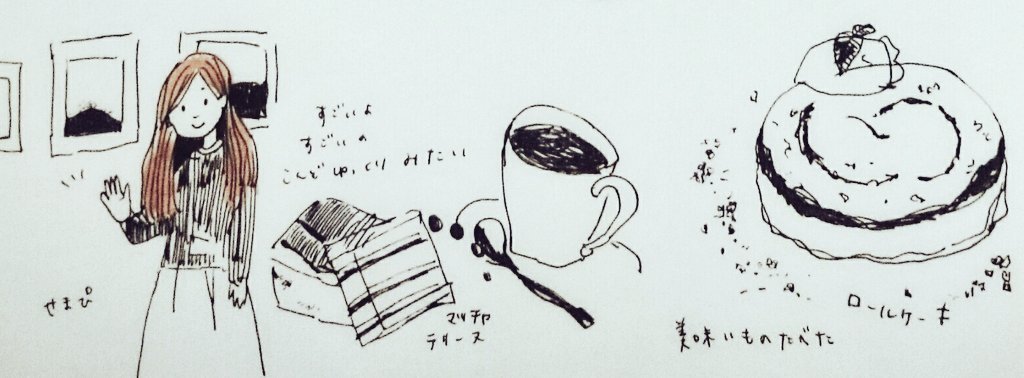 すごいよ
すごいの
こんどゆっくりみたい
せまぴ
マッチャ
テリーヌ
ロールケーキ
美味いものたべた